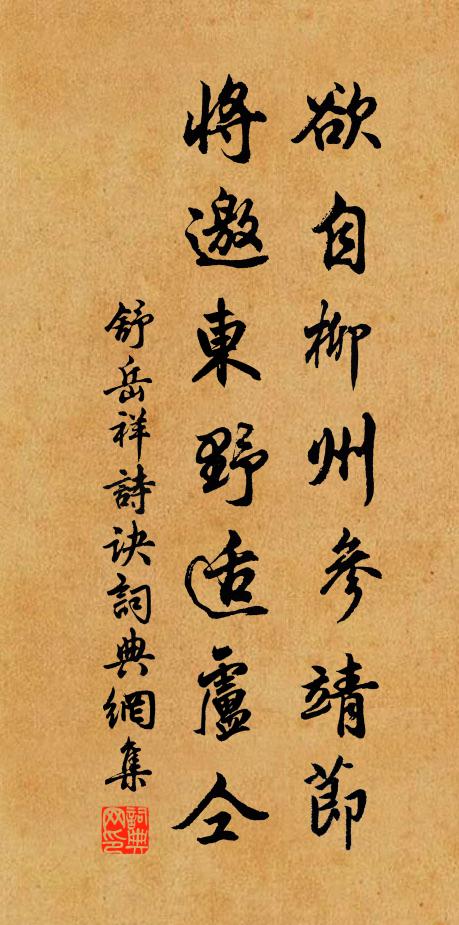 欲自柳州參靖節
將邀東野适盧仝
舒岳祥詩诀詞典網集
詞典网印